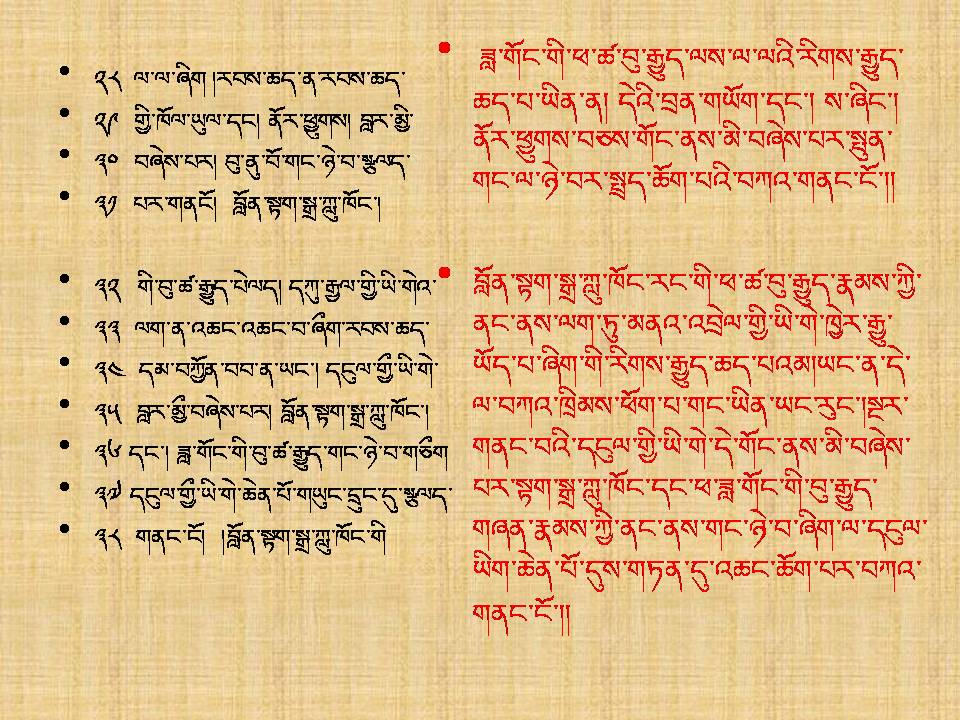 ༢༨ ལ་ལ་ཞིག །རབས་ཆད་ན་རབས་ཆད་
༢༩ གྱི་ཁོལ་ཡུལ་དང། ནོར་ཕྱུགས། བླར་མྱི་
༣༠ བཞེས་པར། བུ་ནུ་པོ་གང་ཉེ་བ་སྩལད་
༣༡ པར་གནངོ། བློན་སྟག་སྒྲ་ཀླུ་ཁོང་།
༣༢ གི་བུ་ཚ་རྒྱུད་པེལད། དཀུ་རྒྱལ་གྱི་ཡི་གེའ་
༣༣ ལག་ན་འཆང་འཆང་བ་ཞིག་རབས་ཆད་
༣༤ དམ་བཀྱོན་བབ་ན་ཡང་། དངུལ་གྱི་ཡི་གེ་
༣༥ བླར་མྱི་བཞེས་པར། བློན་སྟག་སྒྲ་ཀླུ་ཁོང་།
༣༦ དང་། ཟླ་གོང་གི་བུ་ཚ་རྒྱུད་གང་ཉེ་བ་གཅིག
༣༧ དངུལ་གྱི་ཡི་གེ་ཆེན་པོ་གཡུང་དྲུང་དུ་སྩལད་
༣༨ གནང་ངོ། །བློན་སྟག་སྒྲ་ཀླུ་ཁོང་གི
ཟླ་གོང་གི་ཕ་ཚ་བུ་རྒྱུད་ལས་ལ་ལའི་རིགས་རྒྱུད་
ཆད་པ་ཡིན་ན། དེའི་བྲན་གཡོག་དང་། ས་ཞིང་།
ནོར་ཕྱུགས་བཅས་གོང་ནས་མི་བཞེས་པར་སྤུན་
གང་ལ་ཉེ་བར་སྤྲད་ཆོག་པའི་བཀའ་གནང་ངོ་།།
བློན་སྟག་སྒྲ་ཀླུ་ཁོང་རང་གི་ཕ་ཚ་བུ་རྒྱུད་རྣམས་ཀྱི་
ནང་ནས་ལག་ཏུ་མནའ་འབྲེལ་གྱི་ཡི་གེ་ཁྱེར་རྒྱུ་
ཡོད་པ་ཞིག་གི་རིགས་རྒྱུད་ཆད་པའམ།ཡང་ན་དེ་
ལ་བཀའ་ཁྲིམས་ཕོག་པ་གང་ཡིན་ཡང་རུང་།སྔར་
གནང་བའི་དངུལ་གྱི་ཡི་གེ་དེ་གོང་ནས་མི་བཞེས་
པར་སྟག་སྒྲ་ཀླུ་ཁོང་དང་ཕ་ཟླ་གོང་གི་བུ་རྒྱུད་
གཞན་རྣམས་ཀྱི་ནང་ནས་གང་ཉེ་བ་ཞིག་ལ་དངུལ་
ཡིག་ཆེན་པོ་དུས་གཏན་དུ་འཆང་ཆོག་པར་བཀའ་
གནང་ངོ་།།